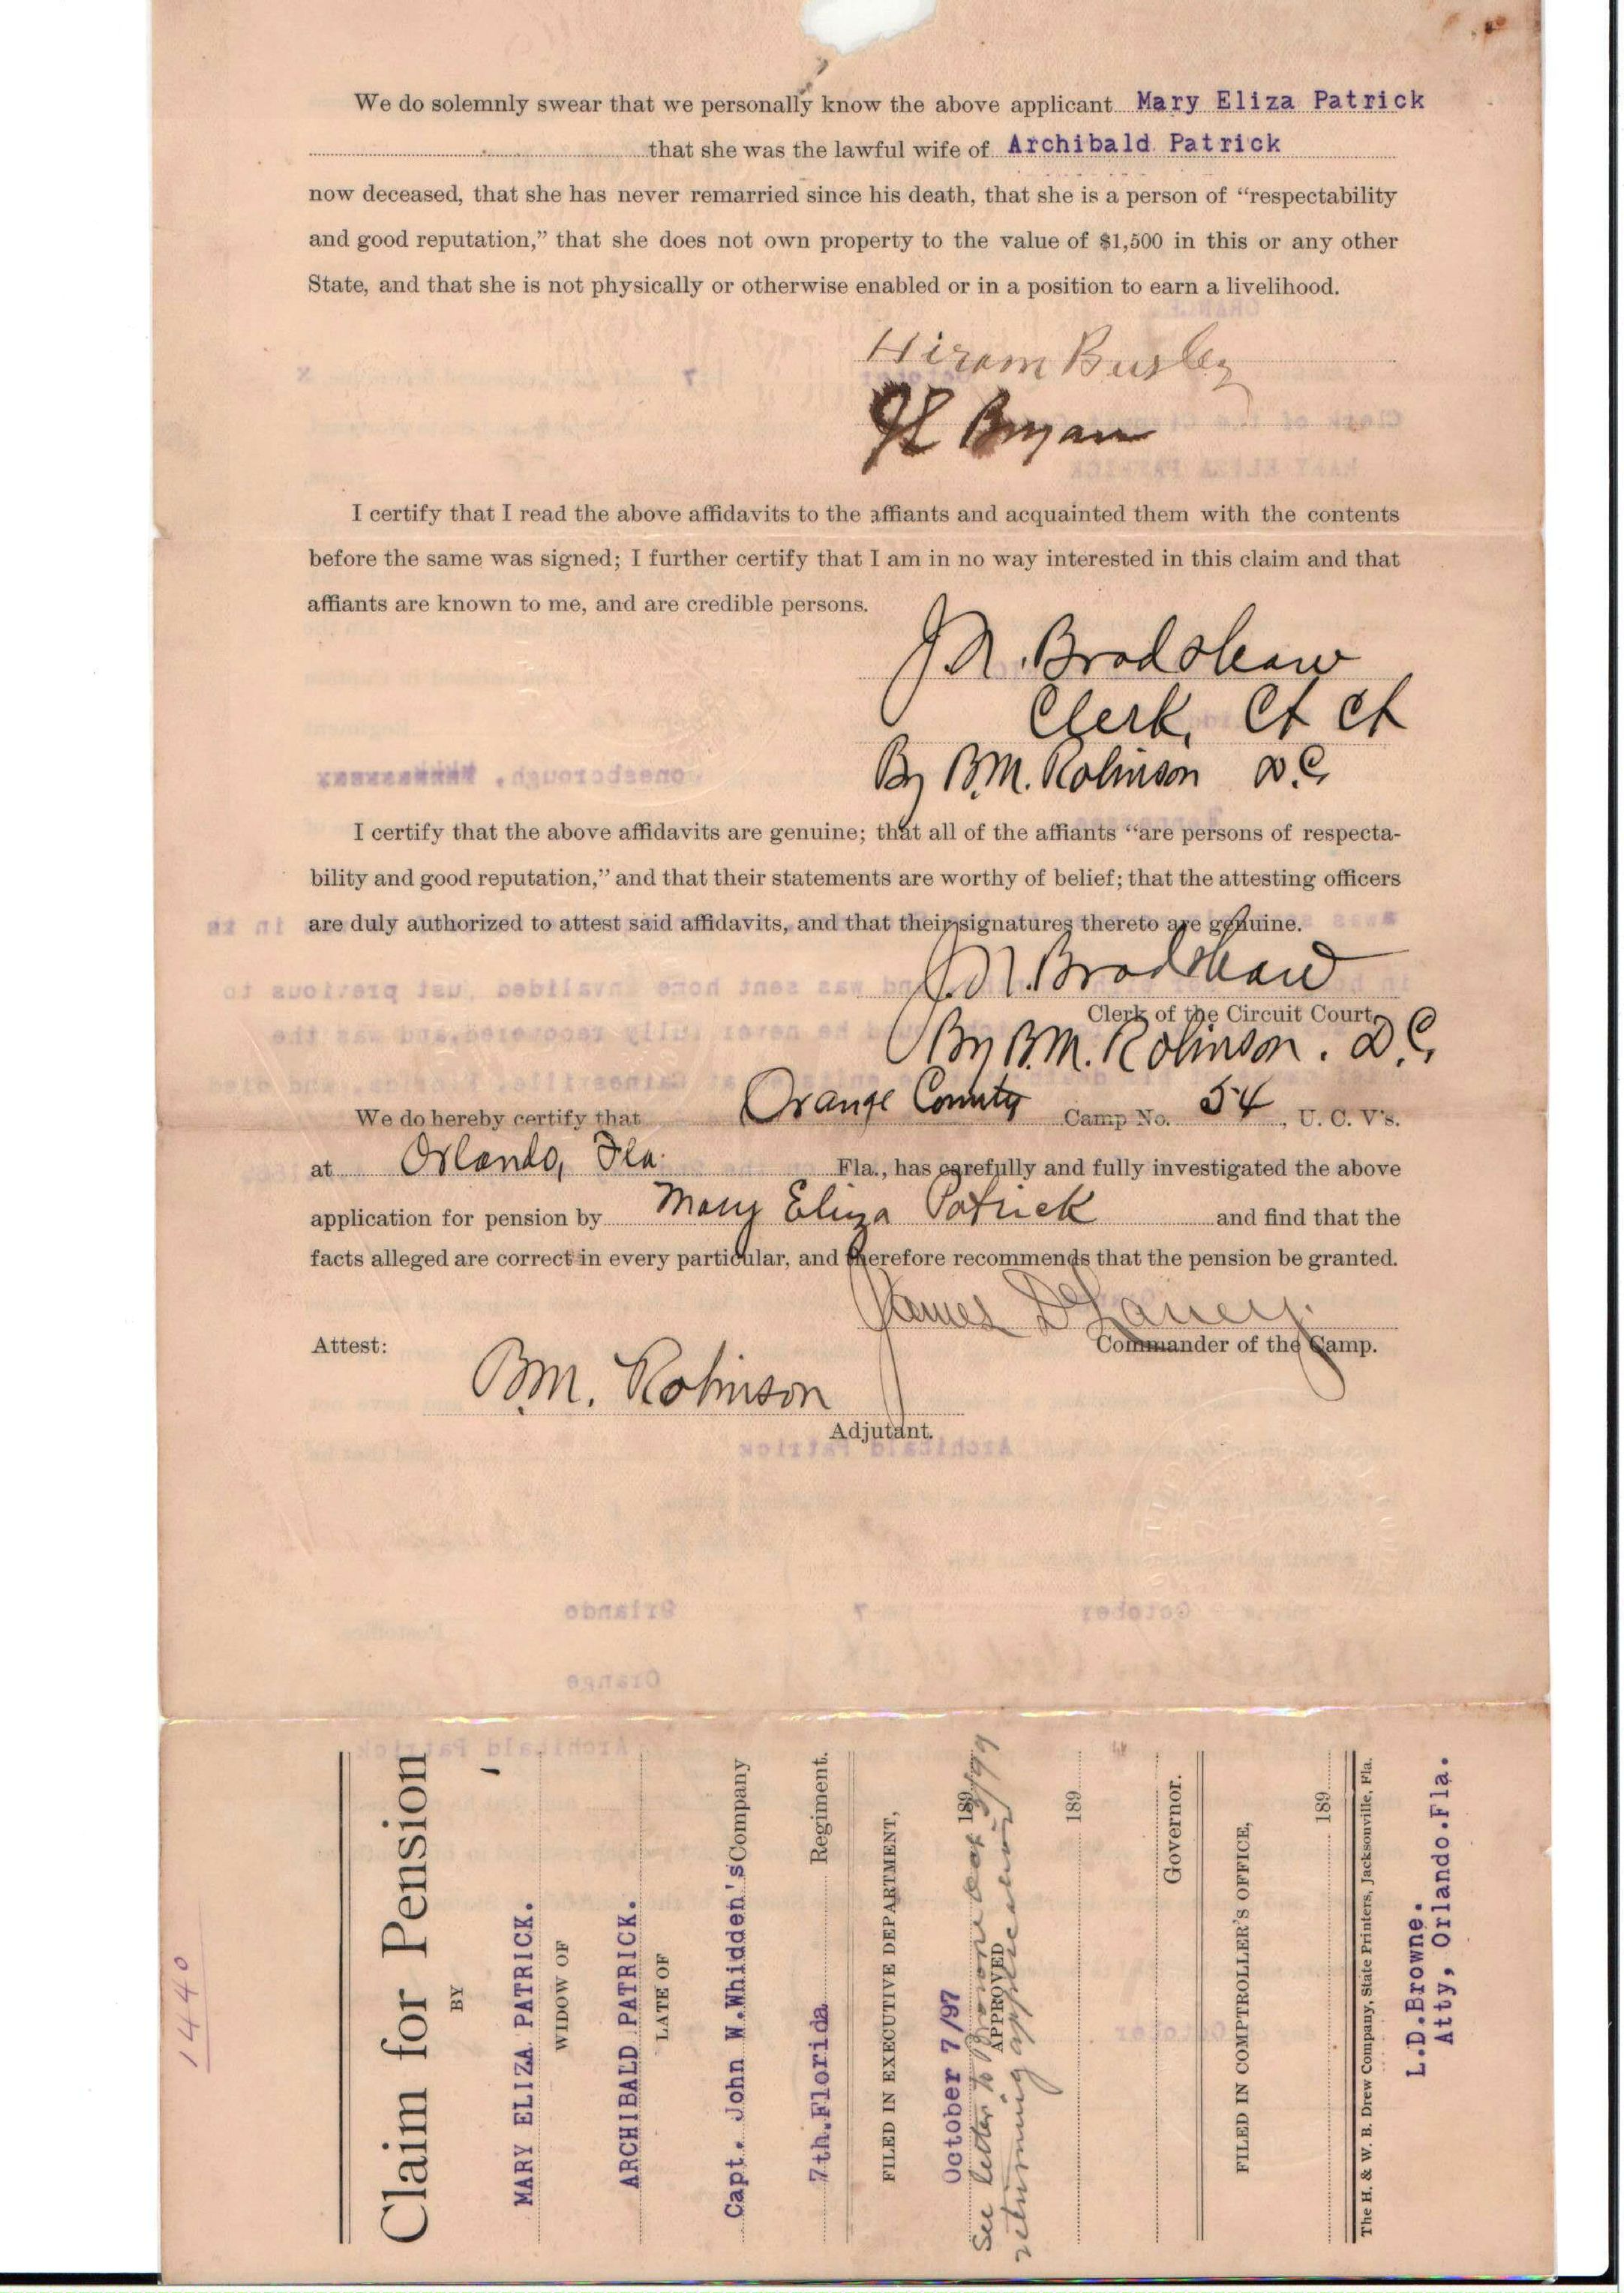 We do solemnly swear that we personally know the above applicant Mary Eliza Patrick
that she was the lawful wife of Archibald Patrick
now deceased, that she has never remarried since his death, that she is a person of “respectability
and good reputation,” that she does not own property to the value of $1,500 in this or any other
State, and that she is not physically or otherwise enabled or in a position to earn a livelihood.
Hiram Busley
Bryan
I certify that I read the above affidavits to the affiants and acquainted them with the contents
before the same was signed; I further certify that I am in no way interested in this claim and that
affiants are known to me, and are credible persons.
J.N. Bradshaw
Clerk, Ct Ct
By B.M. Robinson D.C.
I certify that the above affidavits are genuine; that all of the affiants “are persons of respecta-
bility and good reputation,” and that their statements are worthy of belief; that the attesting officers
are duly authorized to attest said affidavits, and that their signatures thereto are genuine.
J.N. Bradshaw
Clerk of the Circuit Court.
By B.M. Robinson. D.C.
We do hereby certify that Orange County Camp No. 54, U. C. V's.
at Orlando, Fla. Fla., has carefully and fully investigated the above
application for pension by Mary Eliza Patrick and find that the
facts alleged are correct in every particular, and therefore recommends that the pension be granted.
James DeLaney.
Commander of the Camp.
Attest:
B.M. Robinson
Adjutant.
1440
Claim for Pension
BY
MARY ELIZA PATRICK.
WIDOW OF
ARCHIBALD PATRICK.
LATE OF
Capt. John W.Whidden's Company
7th.Florida Regiment.
FILED IN EXECUTIVE DEPARTMENT,
October 7/97 189
See letter to Browne Oct 3/99
APPROVED
returning application
189
Governor.
FILED IN COMPTROLLER'S OFFICE,
189
The H. & W. B. Drew Company, State Printers, Jacksonville, Fla.
L.D.Browne.
Atty, Orlando.Fla.